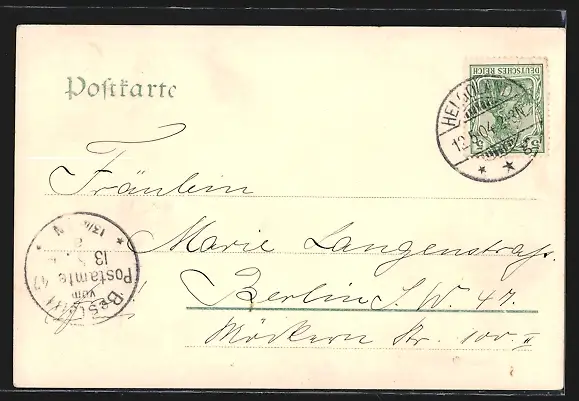 Postkarte
DEUTSCHES REICH
5 5
HELGOLAND
12.5.04. 2-3N.
Fräulein
Marie Langenstrass.
Berlin S. W. 47.
Möckern Str. 100. II
Bestellt
vom
Postamte 47
13.5.